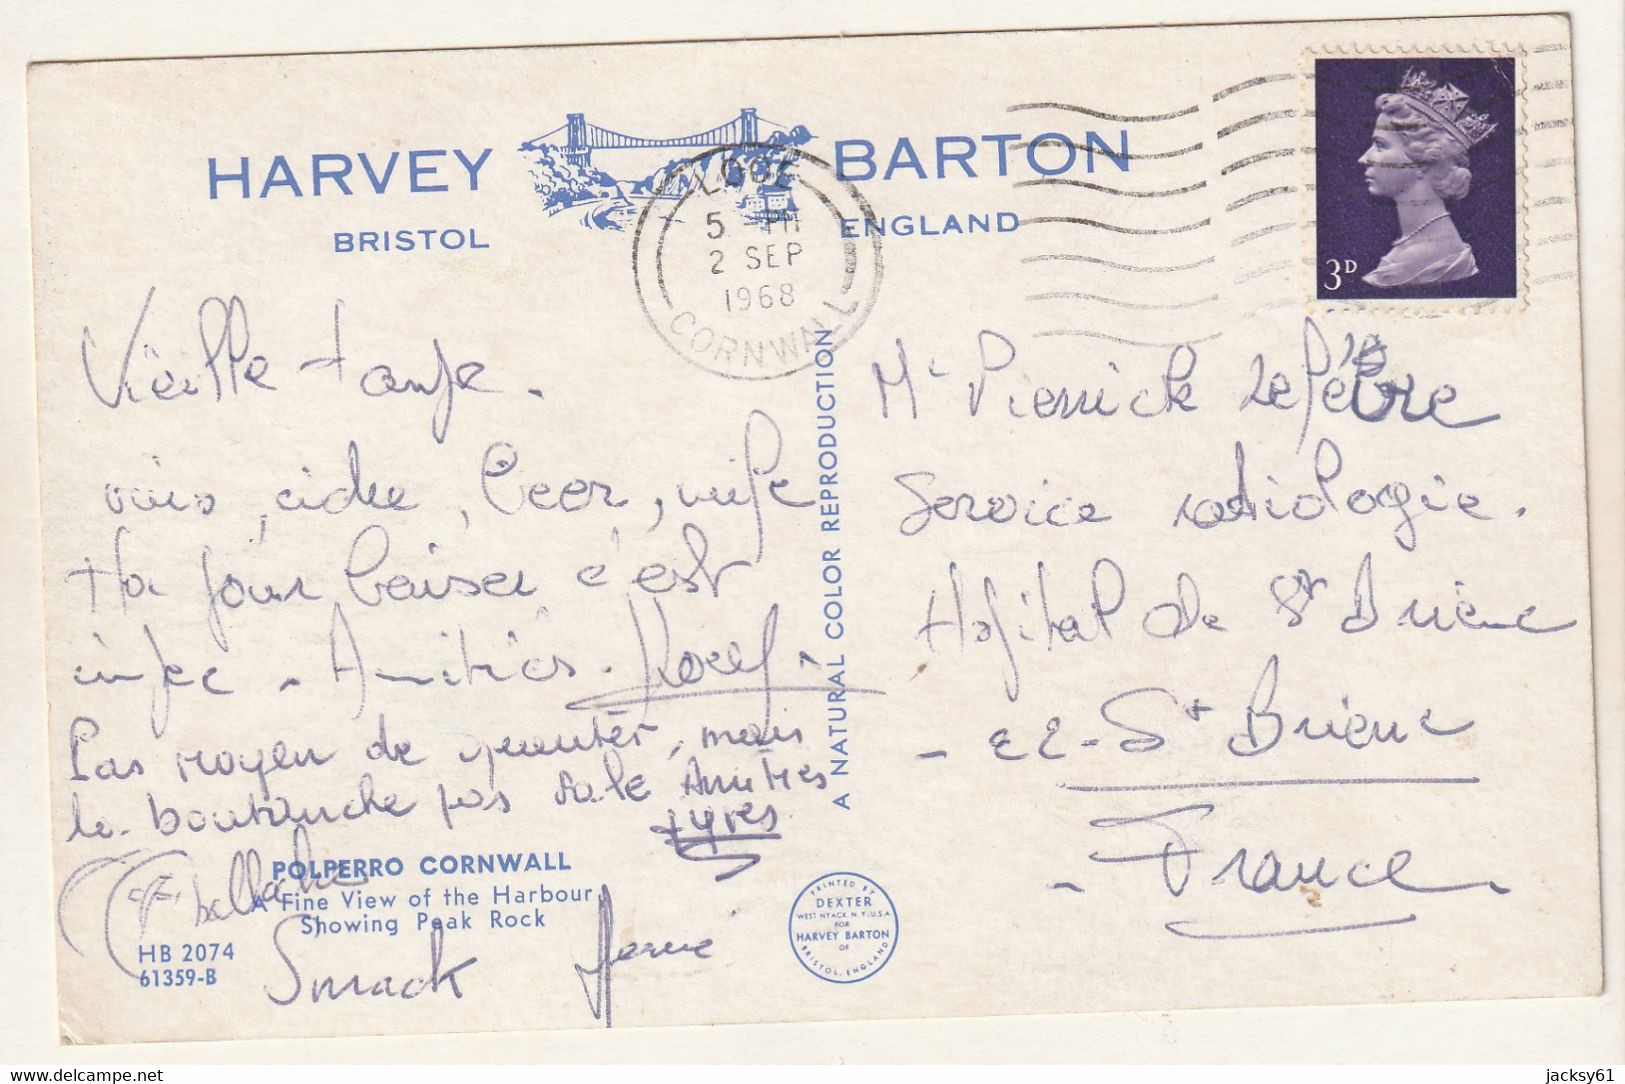 HARVEY BARTON
BRISTOL ENGLAND
LOOE
5 - PM
2 SEP
1968
CORNWALL
3D
Vieille
vins, cidre, beer,
pour baiser c'est
Amitiés.
Pas moyen de mais
la pas sale Amitiés
Smack Hervé
Mr Pierrick Lefebvre
Service radiologie.
Hôpital de St Brieuc
- 22 - St Brieuc
- France.
A NATURAL COLOR REPRODUCTION
POLPERRO CORNWALL
A Fine View of the Harbour,
Showing Peak Rock
HB 2074
61359-B
PRINTED BY
DEXTER
WEST NYACK, N.Y., U.S.A
FOR
HARVEY BARTON
OF
BRISTOL, ENGLAND
jacksy61
delcampe.net